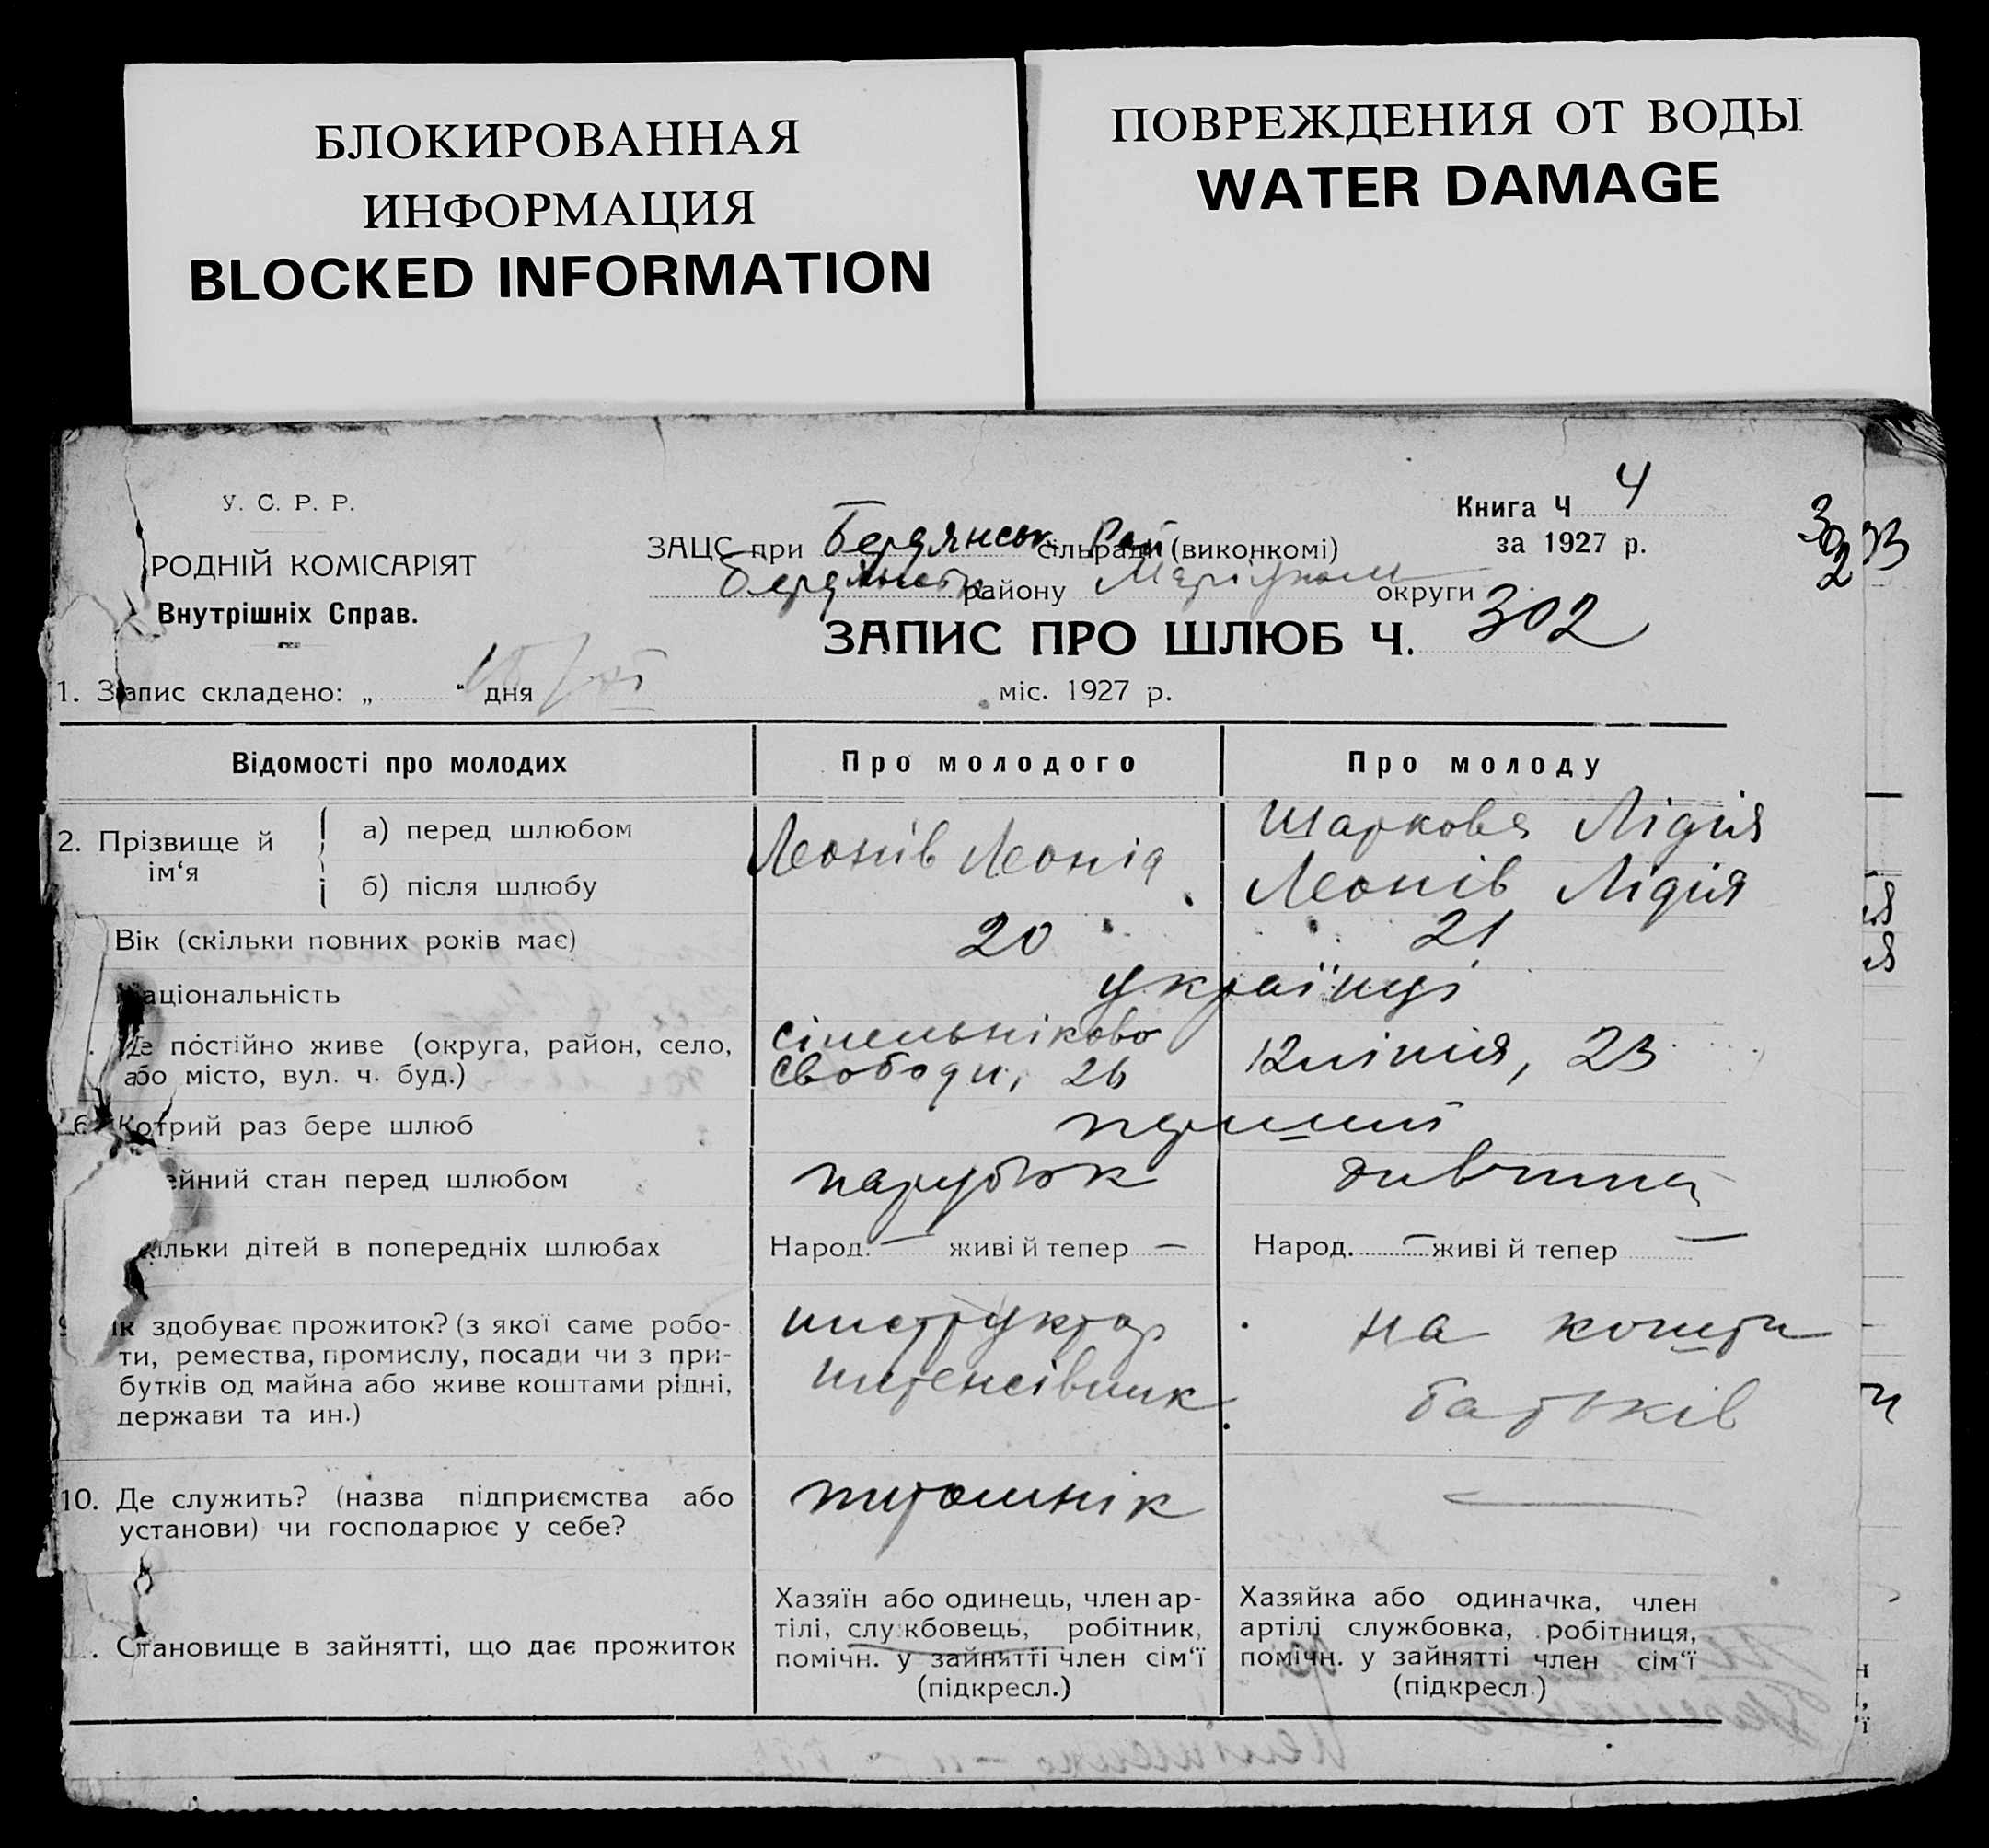 БЛОКИРОВАННАЯ
ИНФОРМАЦИЯ
BLOCKED INFORMATION
ПОВРЕЖДЕНИЯ ОТ ВОДЫ
WATER DAMAGE
У. С. Р. Р.
РОДНІЙ КОМІСАРІЯТ
Внутрішніх Справ.
Книга Ч 4
за 1927 р.
302
33
ЗАЦС при Бердянськ. Рай сільради (виконкомі)
Бердянськ району Маріупол округи
ЗАПИС ПРО ШЛЮБ Ч. 302
1. Запис складено: „ “ дня міс. 1927 р.
Відомості про молодих Про молодого Про молоду
2. Прізвище й ім‘я
а) перед шлюбом Леонів Леонід Шаркова Лідія
б) після шлюбу Леонів Лідія
Вік (скільки повних років має) 20 21
Національність українці
Де постійно живе (округа, район, село, Сінельніково
або місто, вул. ч. буд.) Свободи, 26 12 лінія, 23
6. Котрий раз бере шлюб перший
ейний стан перед шлюбом парубок дивчина
кільки дітей в попередніх шлюбах Народ. — живі й тепер — Народ. — живі й тепер —
9 як здобуває прожиток? (з якої саме робо- инструктор на кошти
ти, ремества, промислу, посади чи з при-
бутків од майна або живе коштами рідні, интенсівник батьків
держави та ин.)
10. Де служить? (назва підприємства або питомнік —
установи) чи господарює у себе?
. Становище в зайнятті, що дає прожиток
Хазяїн або одинець, член ар-
тілі, службовець, робітник,
помічн. у зайнятті член сім‘ї
(підкресл.)
Хазяйка або одиначка, член
артілі службовка, робітниця,
помічн. у зайнятті член сім‘ї
(підкресл.)